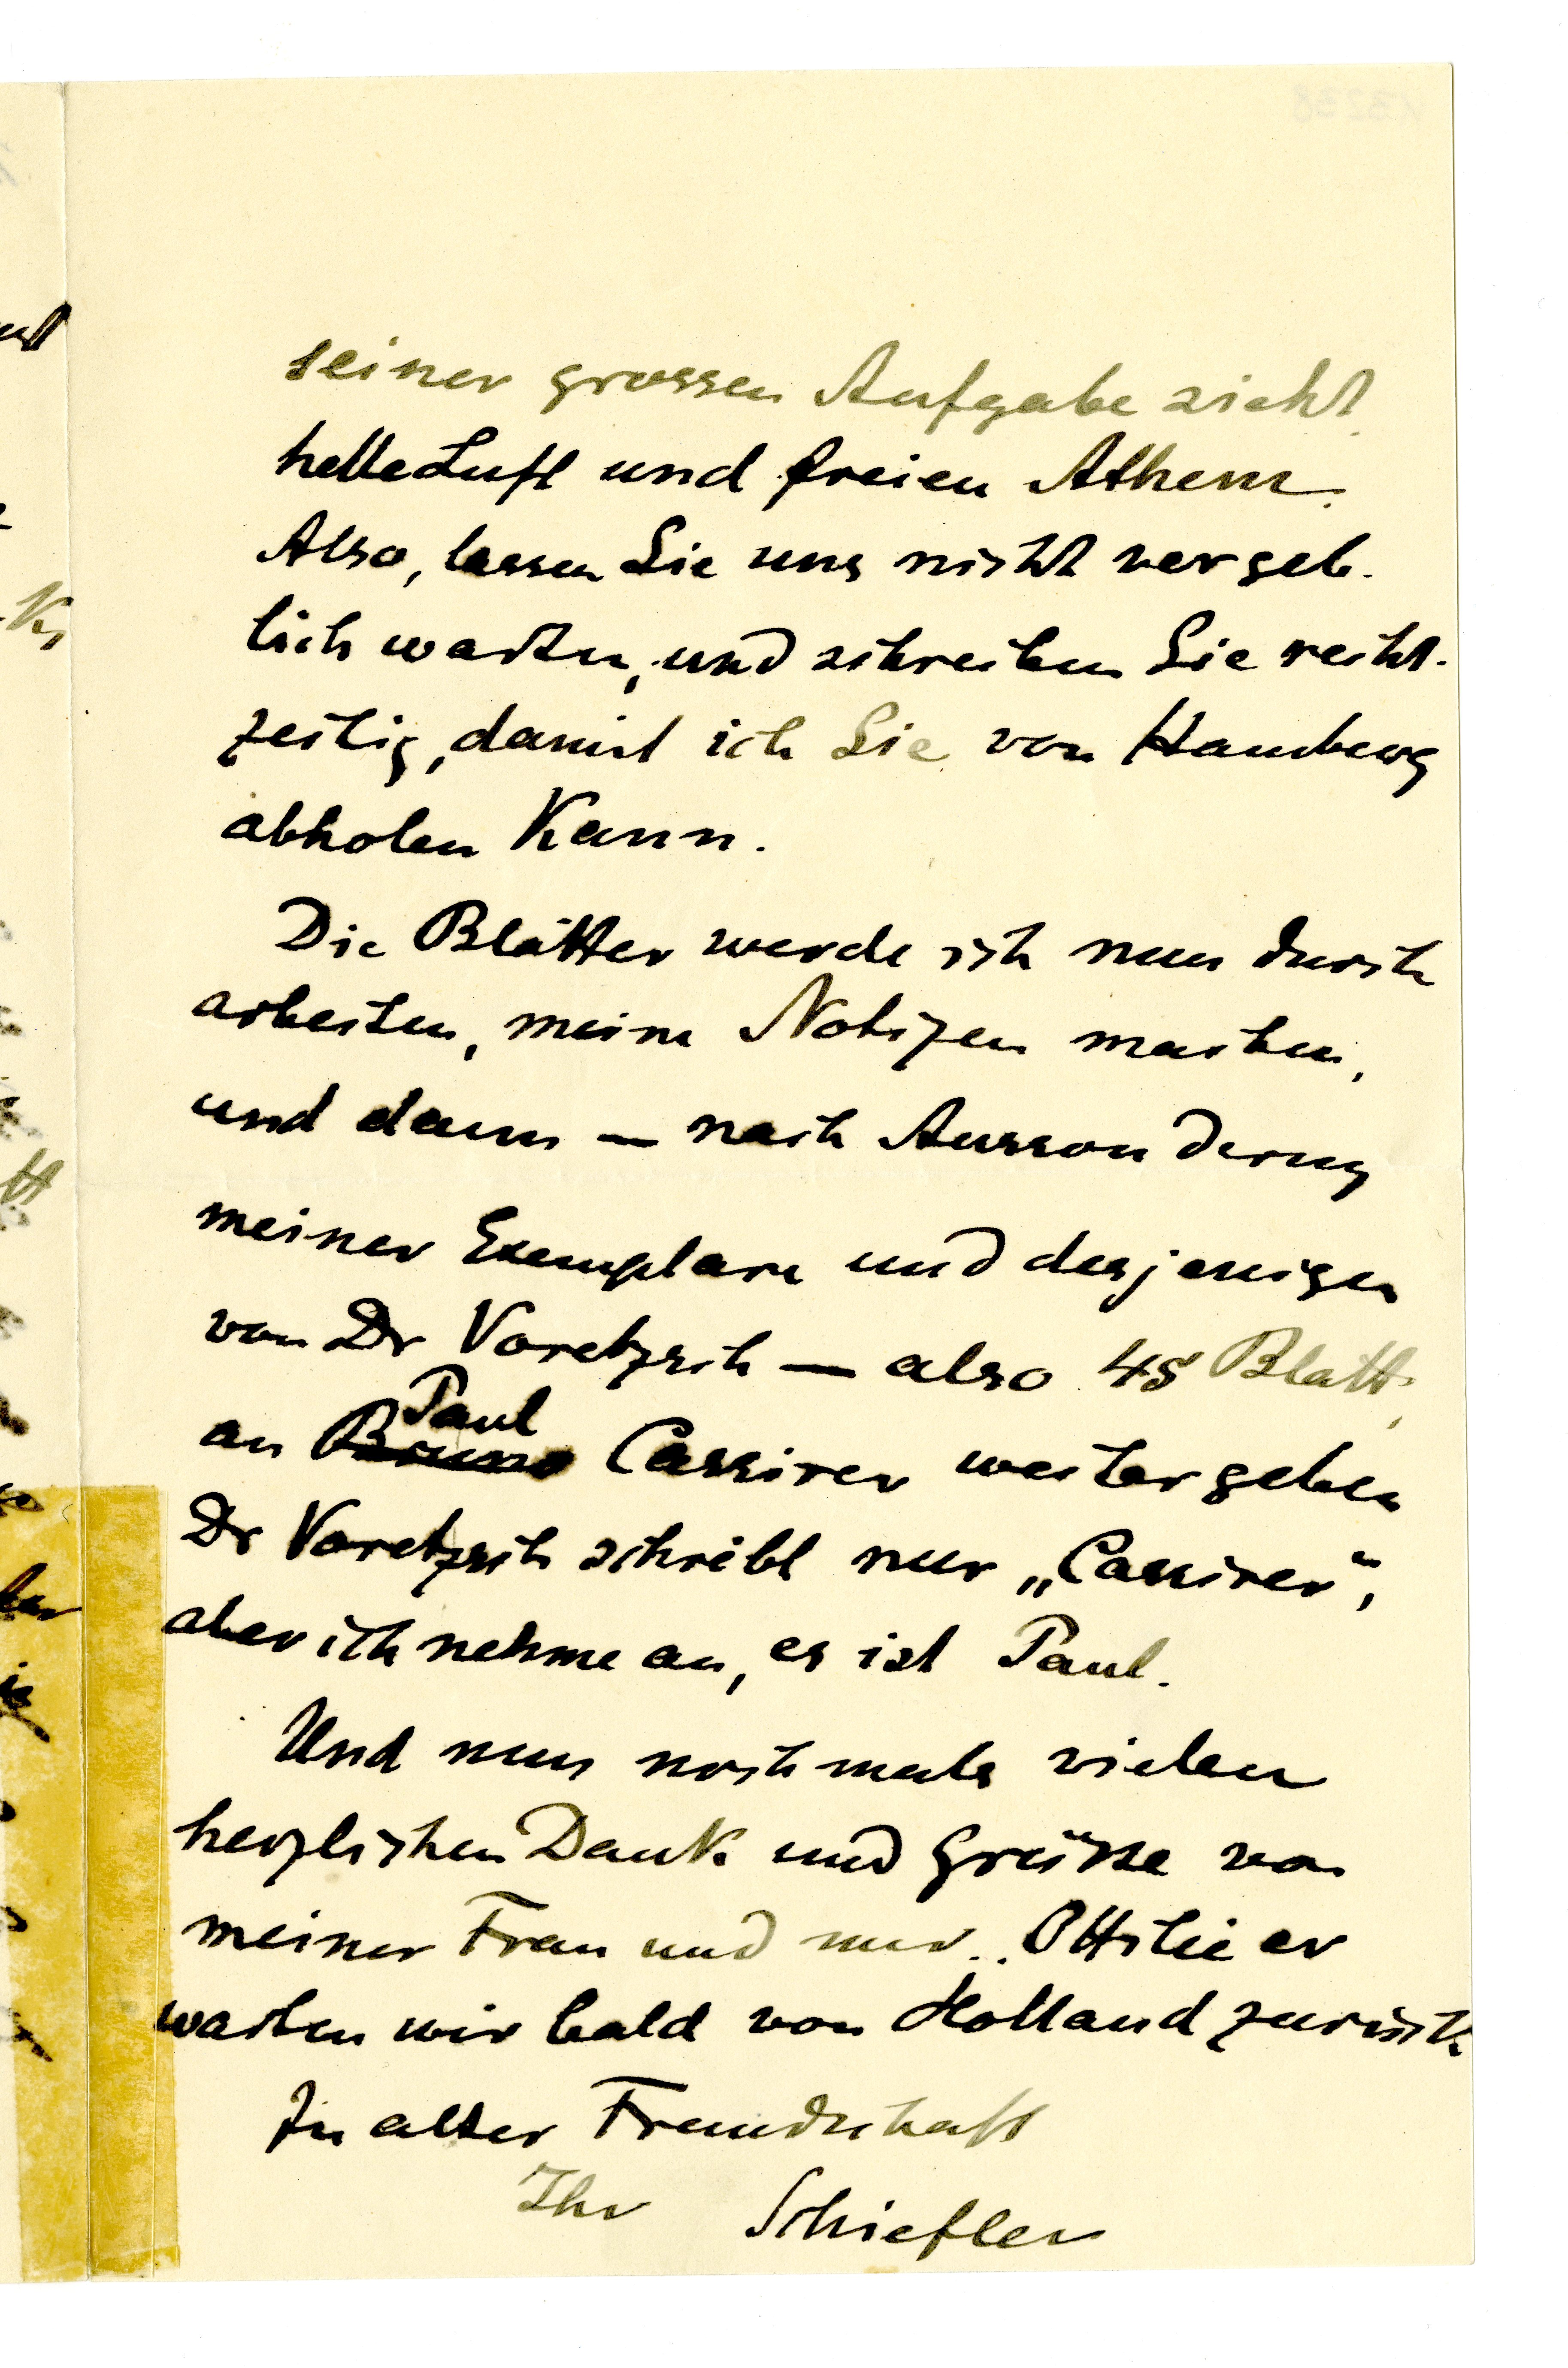 seiner grossen Aufgabe zieht
helle Luft und freien Athem.
Also, lassen Sie uns nicht vergeb-
lich warten, und schreiben Sie recht-
zeitig, damit ich Sie von Hamburg
abholen kann.
Die Blätter werde ich nun durch
arbeiten, meine Notizen machen,
und dann — nach Aussonderung
meiner Exemplare und desjenigen
von Dr Voretzsch — also 48 Blatt,
Paul
an Bruno Cassirer weitergeben
Dr Voretzsch schreibt nur „Cassirer“,
aber ich nehme an, es ist Paul.
Und nun nochmals vielen
herzlichen Dank und Grüsse von
meiner Frau und mir. Ottilie er
warten wir bald von Holland zurück
In alter Freundschaft
Ihr Schiefler